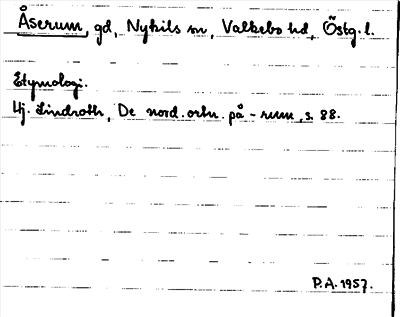 Åserum, gd, Nykils sn, Valkebo hd, Östg. l.
Etymologi.
Hj. Lindroth, De nord. ortn. på -rum, s. 88.
P.A. 1957.